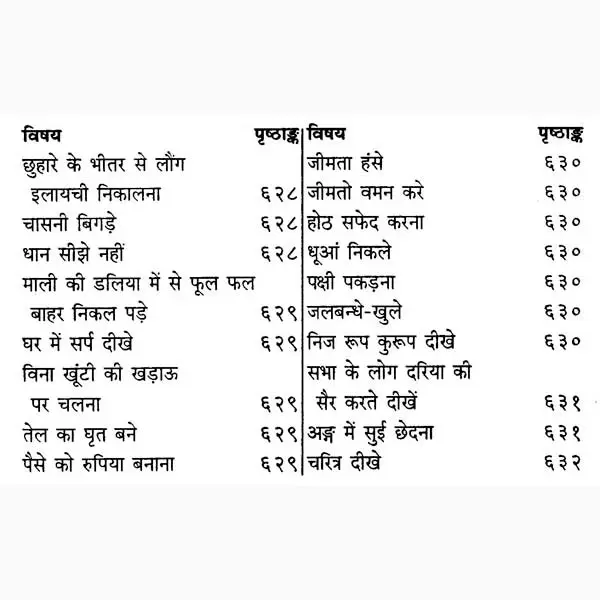 विषय पृष्ठाङ्क
छुहारे के भीतर से लौंग
इलायची निकालना ६२८
चासनी बिगड़े ६२८
धान सीझे नहीं ६२८
माली की डलिया में से फूल फल
बाहर निकल पड़े ६२९
घर में सर्प दीखे ६२९
विना खूंटी की खड़ाऊ
पर चलना ६२९
तेल का घृत बने ६२९
पैसे को रुपिया बनाना ६२९
विषय पृष्ठाङ्क
जीमता हंसे ६३०
जीमतो वमन करे ६३०
होठ सफेद करना ६३०
धूआं निकले ६३०
पक्षी पकड़ना ६३०
जलबन्धे-खुले ६३०
निज रूप कुरूप दीखे ६३०
सभा के लोग दरिया की
सैर करते दीखें ६३१
अङ्ग में सुई छेदना ६३१
चरित्र दीखे ६३२